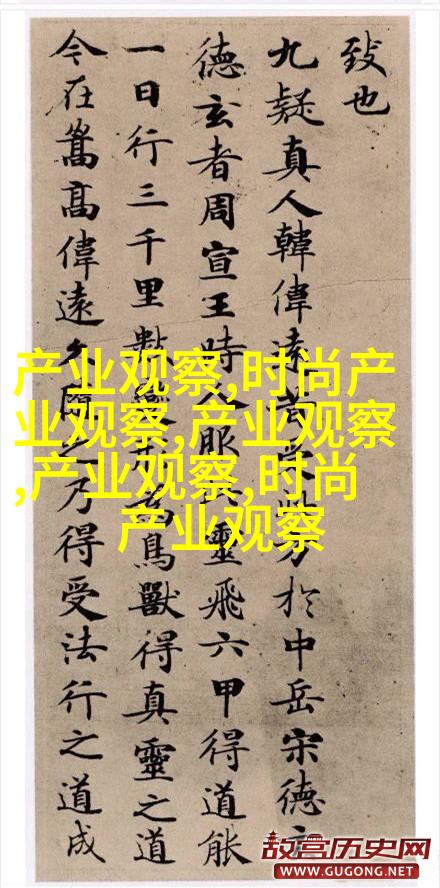 致也
九疑真人韓偉遠昔受此方於中岳宋德玄
德玄者周宣王時人服此靈飛六甲得道能
一日行三千里數變形為鳥獸得真靈之道
今在嵩高偉遠久隨之乃得受法行之道成
产业观察,时尚产
业观察,产业观察
,产业观察,时尚
产业观察
故宫历史网
www.GUGONG.NET